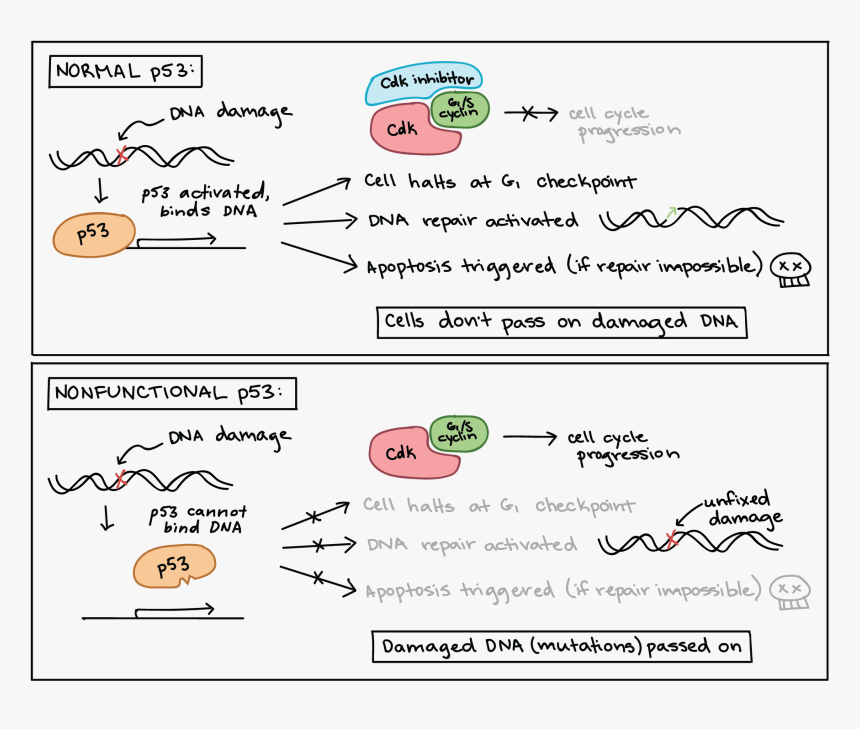 NORMAL p53:
DNA damage
p53 activated,
binds DNA
p53
Cdk inhibitor
G₁/S
cyclin
Cdk
cell cycle
progression
Cell halts at G₁ checkpoint
DNA repair activated
Apoptosis triggered (if repair impossible)
Cells don't pass on damaged DNA
NONFUNCTIONAL p53:
DNA damage
p53 cannot
bind DNA
p53
G₁/S
cyclin
Cdk
cell cycle
progression
Cell halts at G₁ checkpoint
DNA repair activated
unfixed
damage
Apoptosis triggered (if repair impossible)
Damaged DNA (mutations) passed on